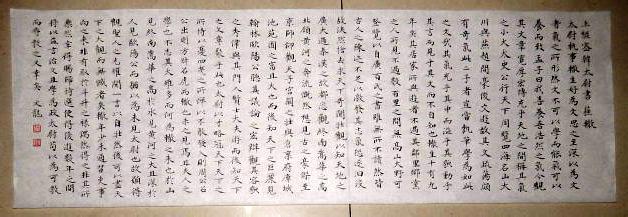 上樞密韓太尉書 蘇轍
太尉執事轍生好為文思之至深以為文
者氣之所形然文不可以學而能氣可以
養而致孟子曰我善養吾浩然之氣今觀
其文章寬厚宏博充乎天地之間稱其氣
之小大太史公行天下周覽四海名山大
川與燕趙間豪俊交遊故其文疏蕩頗
有奇氣此二子者豈嘗執筆學為如此
之文哉其氣充乎其中而溢乎其貌動乎
其言而見乎其文而不自知也轍生十有九
年矣其居家所與遊者不過其鄰里鄉黨
之人所見不過數百里之間無高山大野可
登覽以自廣百氏之書雖無所不讀然皆
古人之陳迹不足以激發其志氣恐遂汩沒
故決然捨去求天下奇聞壯觀以知天地之
廣大過秦漢之故都恣觀終南嵩華之高
北顧黃河之奔流慨然想見古之豪傑至
京師仰觀天子宮闕之壯與倉廩府庫城
池苑囿之富且大也而後知天下之巨麗見
翰林歐陽公聽其議論之宏辯觀其容貌
之秀偉與其門人賢士大夫遊而後知天下
之文章聚乎此也太尉以才略冠天下天下之
所恃以無憂四夷之所憚以不敢發入則周公召
公出則方叔召虎而轍也未之見焉且夫人之
學也不志其大雖多而何為轍之來也於山
見終南嵩華之高於水見黃河之大且深於
人見歐陽公而猶以為未見太尉也故願得
觀賢人之光耀聞一言以自壯然後可以盡天
下之大觀而無憾者矣轍年少未能通習吏事
嚮之來非有取於斗升之祿偶然得之非其所
樂然幸得賜歸待選使得優游數年之間
將以益治其文且學為政太尉苟以為可教
而辱教之又幸矣 文龍